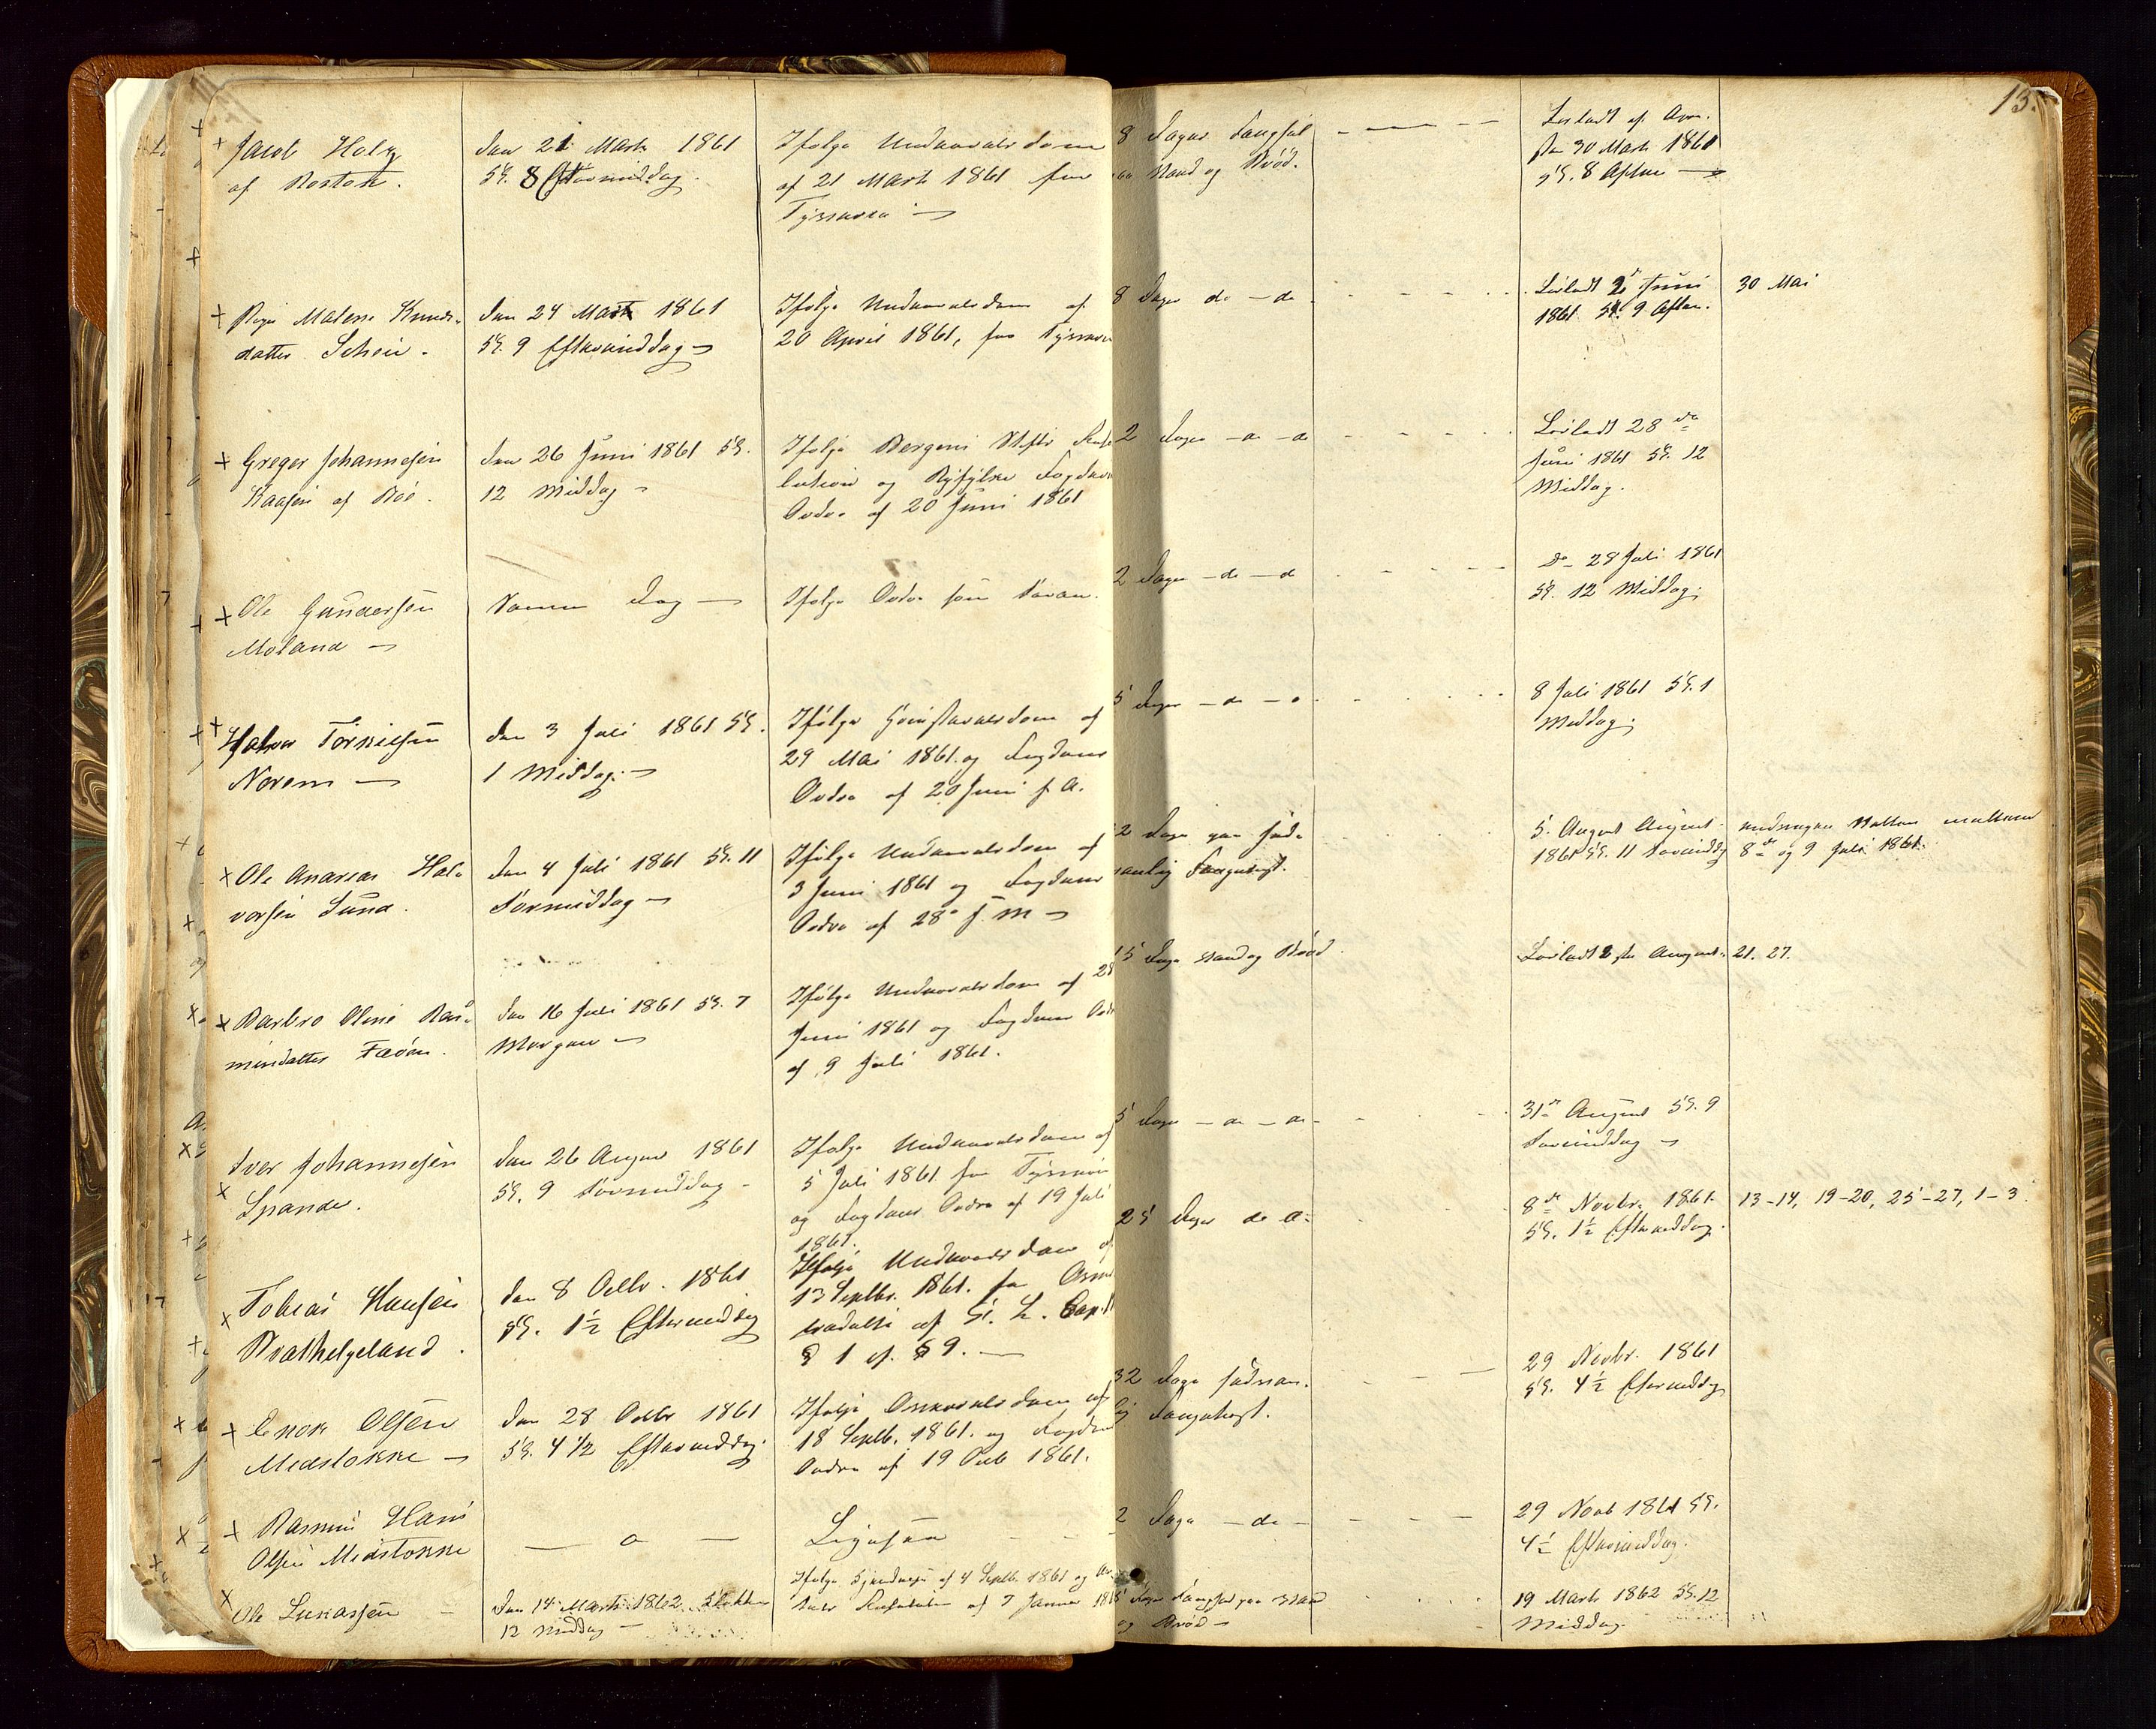 13.
Jacob Holtz
af Rostok.
den 21 Marts 1861
Kl. 8 Eftermiddag.
Ifølge Underretsdom
af 21 Marts 1861 for
Tyveri
8 Dages Fængsel
paa Vand og Brød.
Løsladt af Arre-
sten 30 Marts 1861
Kl. 8 Aften
Malene Knuds-
datter
den 24 1861
Kl. 9 Eftermiddag
Ifølge Underretsdom af
20 April 1861, for Tyveri
8 Dage do - do
Løsladt 2 Juni
1861 Kl. 9 Aften.
30 Mai
Greger Johannesen
af Boe.
den 26 Juni 1861 Kl.
12 Middag
Ifølge Bergens Stifts Reso-
lution og Ryfylke Fogderies
Ordre af 20 Juni 1861
2 Dage - do - do
Løsladt 28 de
Juni 1861 Kl. 12
Middag.
Ole Gundersen
Moland
Samme Dag
Ifølge Ordre som foran.
2 Dage - do - do
do 28 Juli 1861
Kl. 12 Middag.
Halvor Torkielsen
Norem
den 3 Juli 1861 Kl.
1 Middag.
Ifølge Høiesteretsdom af
29 Mai 1861 og Fogdens
Ordre af 20 Juni s. A.
5 Dage - do - do
8 Juli 1861 Kl. 1
Middag.
Ole Andreas Hal-
vorsen Sund.
den 4 Juli 1861 Kl. 11
Formiddag
Ifølge Underretsdom af
3 Juni 1861 og Fogdens
Ordre af 28 s. M
Dage paa sæd-
vanlig Fangekost.
5 August
1861 Kl. 11 Formiddag
8 og 9 Juli 1861.
Barbro Oline Ras-
musdatter
den 16 Juli 1861 Kl. 7
Morgen
Ifølge Underretsdom af 28
Juni 1861 og Fogdens Ordre
af 9 Juli 1861.
15 Dage Vand og Brød
Løsladt August.
21. 27.
Iver Johannesen
den 26 August 1861
Kl. 9 Formiddag
Ifølge Underretsdom af
5 Juli 1861 for Tyveri
og Fogdens Ordre af 19 Juli
1861.
5 Dage - do - do
31 August Kl. 9
Formiddag
Tobias Hansen
Bratthelgeland.
den 8 Octbr. 1861
Kl. 1½ Eftermiddag
Ifølge Underretsdom af
13 Septbr. 1861. for
af
§ 1 cf. § 9.
25 Dage do do
8 de Novbr. 1861
Kl. 1½ Eftermiddag.
13-14, 19-20, 25-27, 1-3.
Enok Olsen
Midstokke
den 28 Octbr 1861
Kl. 4½ Eftermiddag.
Ifølge Overretsdom af
18 Septb. 1861. og Fogdens
Ordre af 19 Octb 1861.
32 Dage sædvan-
lig Fangekost.
29 Novbr. 1861
Kl. 4½ Eftermiddag
Rasmus Hans
Olsen Midstokke
Ligesaa
2 Dage - do -
29 Novb 1861 Kl.
4½ Eftermiddag.
Ole Lukassen
den 14 Marts 1862 Klokken
12 Middag
Ifølge af 4 Septb. 1861 og
Resolution af 7 Januar
5 Dage Fængsel paa Vand
og Brød
19 Marts 1862 Kl. 12
Middag.